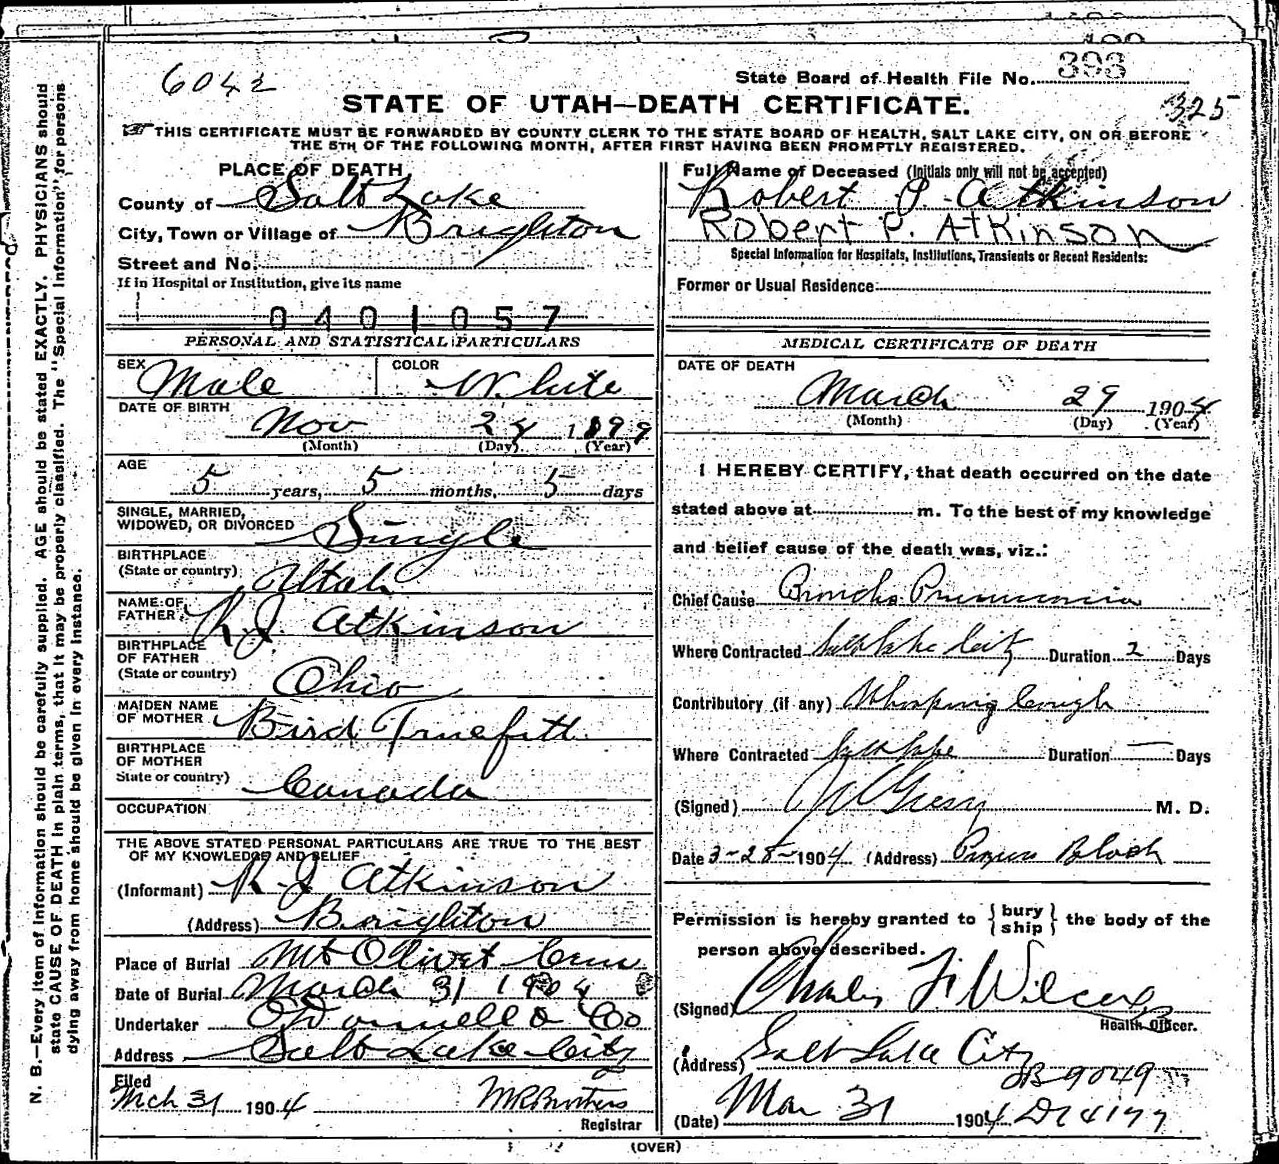 6042
State Board of Health File No. 393
STATE OF UTAH—DEATH CERTIFICATE.
325
THIS CERTIFICATE MUST BE FORWARDED BY COUNTY CLERK TO THE STATE BOARD OF HEALTH, SALT LAKE CITY, ON OR BEFORE
THE 5TH OF THE FOLLOWING MONTH, AFTER FIRST HAVING BEEN PROMPTLY REGISTERED.
PLACE OF DEATH
County of Salt Lake
City, Town or Village of Brighton
Street and No.
If in Hospital or Institution, give its name
0401057
PERSONAL AND STATISTICAL PARTICULARS
SEX Male COLOR White
DATE OF BIRTH
Nov 24 1899
(Month) (Day) (Year)
AGE
5 years, 5 months, 5 days
SINGLE, MARRIED,
WIDOWED, OR DIVORCED Single
BIRTHPLACE
(State or country) Utah
NAME OF
FATHER R. J. Atkinson
BIRTHPLACE
OF FATHER
(State or country) Ohio
MAIDEN NAME
OF MOTHER Bird Truefitt
BIRTHPLACE
OF MOTHER
State or country) Canada
OCCUPATION
THE ABOVE STATED PERSONAL PARTICULARS ARE TRUE TO THE BEST
OF MY KNOWLEDGE AND BELIEF
(Informant) R J Atkinson
(Address) Brighton
Place of Burial Mt Olivet Cem
Date of Burial March 31 1904
Undertaker O'Donnell & Co
Address Salt Lake City
Filed
Mch 31 1904
Registrar
Full Name of Deceased (Initials only will not be accepted)
Robert P. Atkinson
Robert P. Atkinson
Special Information for Hospitals, Institutions, Transients or Recent Residents:
Former or Usual Residence:
MEDICAL CERTIFICATE OF DEATH
DATE OF DEATH
March 29 1904
(Month) (Day) (Year)
I HEREBY CERTIFY, that death occurred on the date
stated above at m. To the best of my knowledge
and belief cause of the death was, viz.:
Chief Cause Broncho Pneumonia
Where Contracted Salt Lake City Duration 2 Days
Contributory (if any) Whooping Cough
Where Contracted Salt Lake Duration — Days
(Signed) M. D.
Date 3-28-1904 (Address) Block
Permission is hereby granted to {bury ship} the body of the
person above described.
(Signed) Charles F. Wilcox
Health Officer.
(Address) Salt Lake City
B-9049
(Date) Mar 31 1904 D14177
(OVER)
N. B.—Every item of information should be carefully supplied. AGE should be stated EXACTLY. PHYSICIANS should
state CAUSE OF DEATH in plain terms, that it may be properly classified. The "Special Information" for persons
dying away from home should be given in every instance.